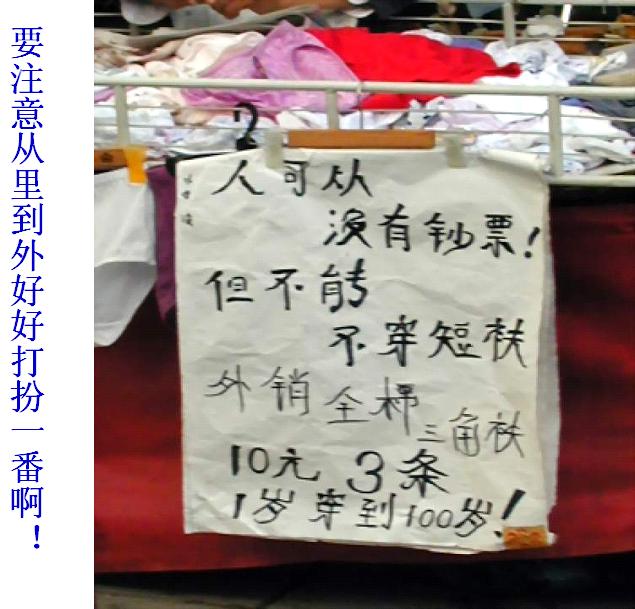 要注意从里到外好好打扮一番啊！
人可从
没有钞票！
但不能
不穿短衭
外销全棉
三角衭
10元 3条
1岁穿到100岁！